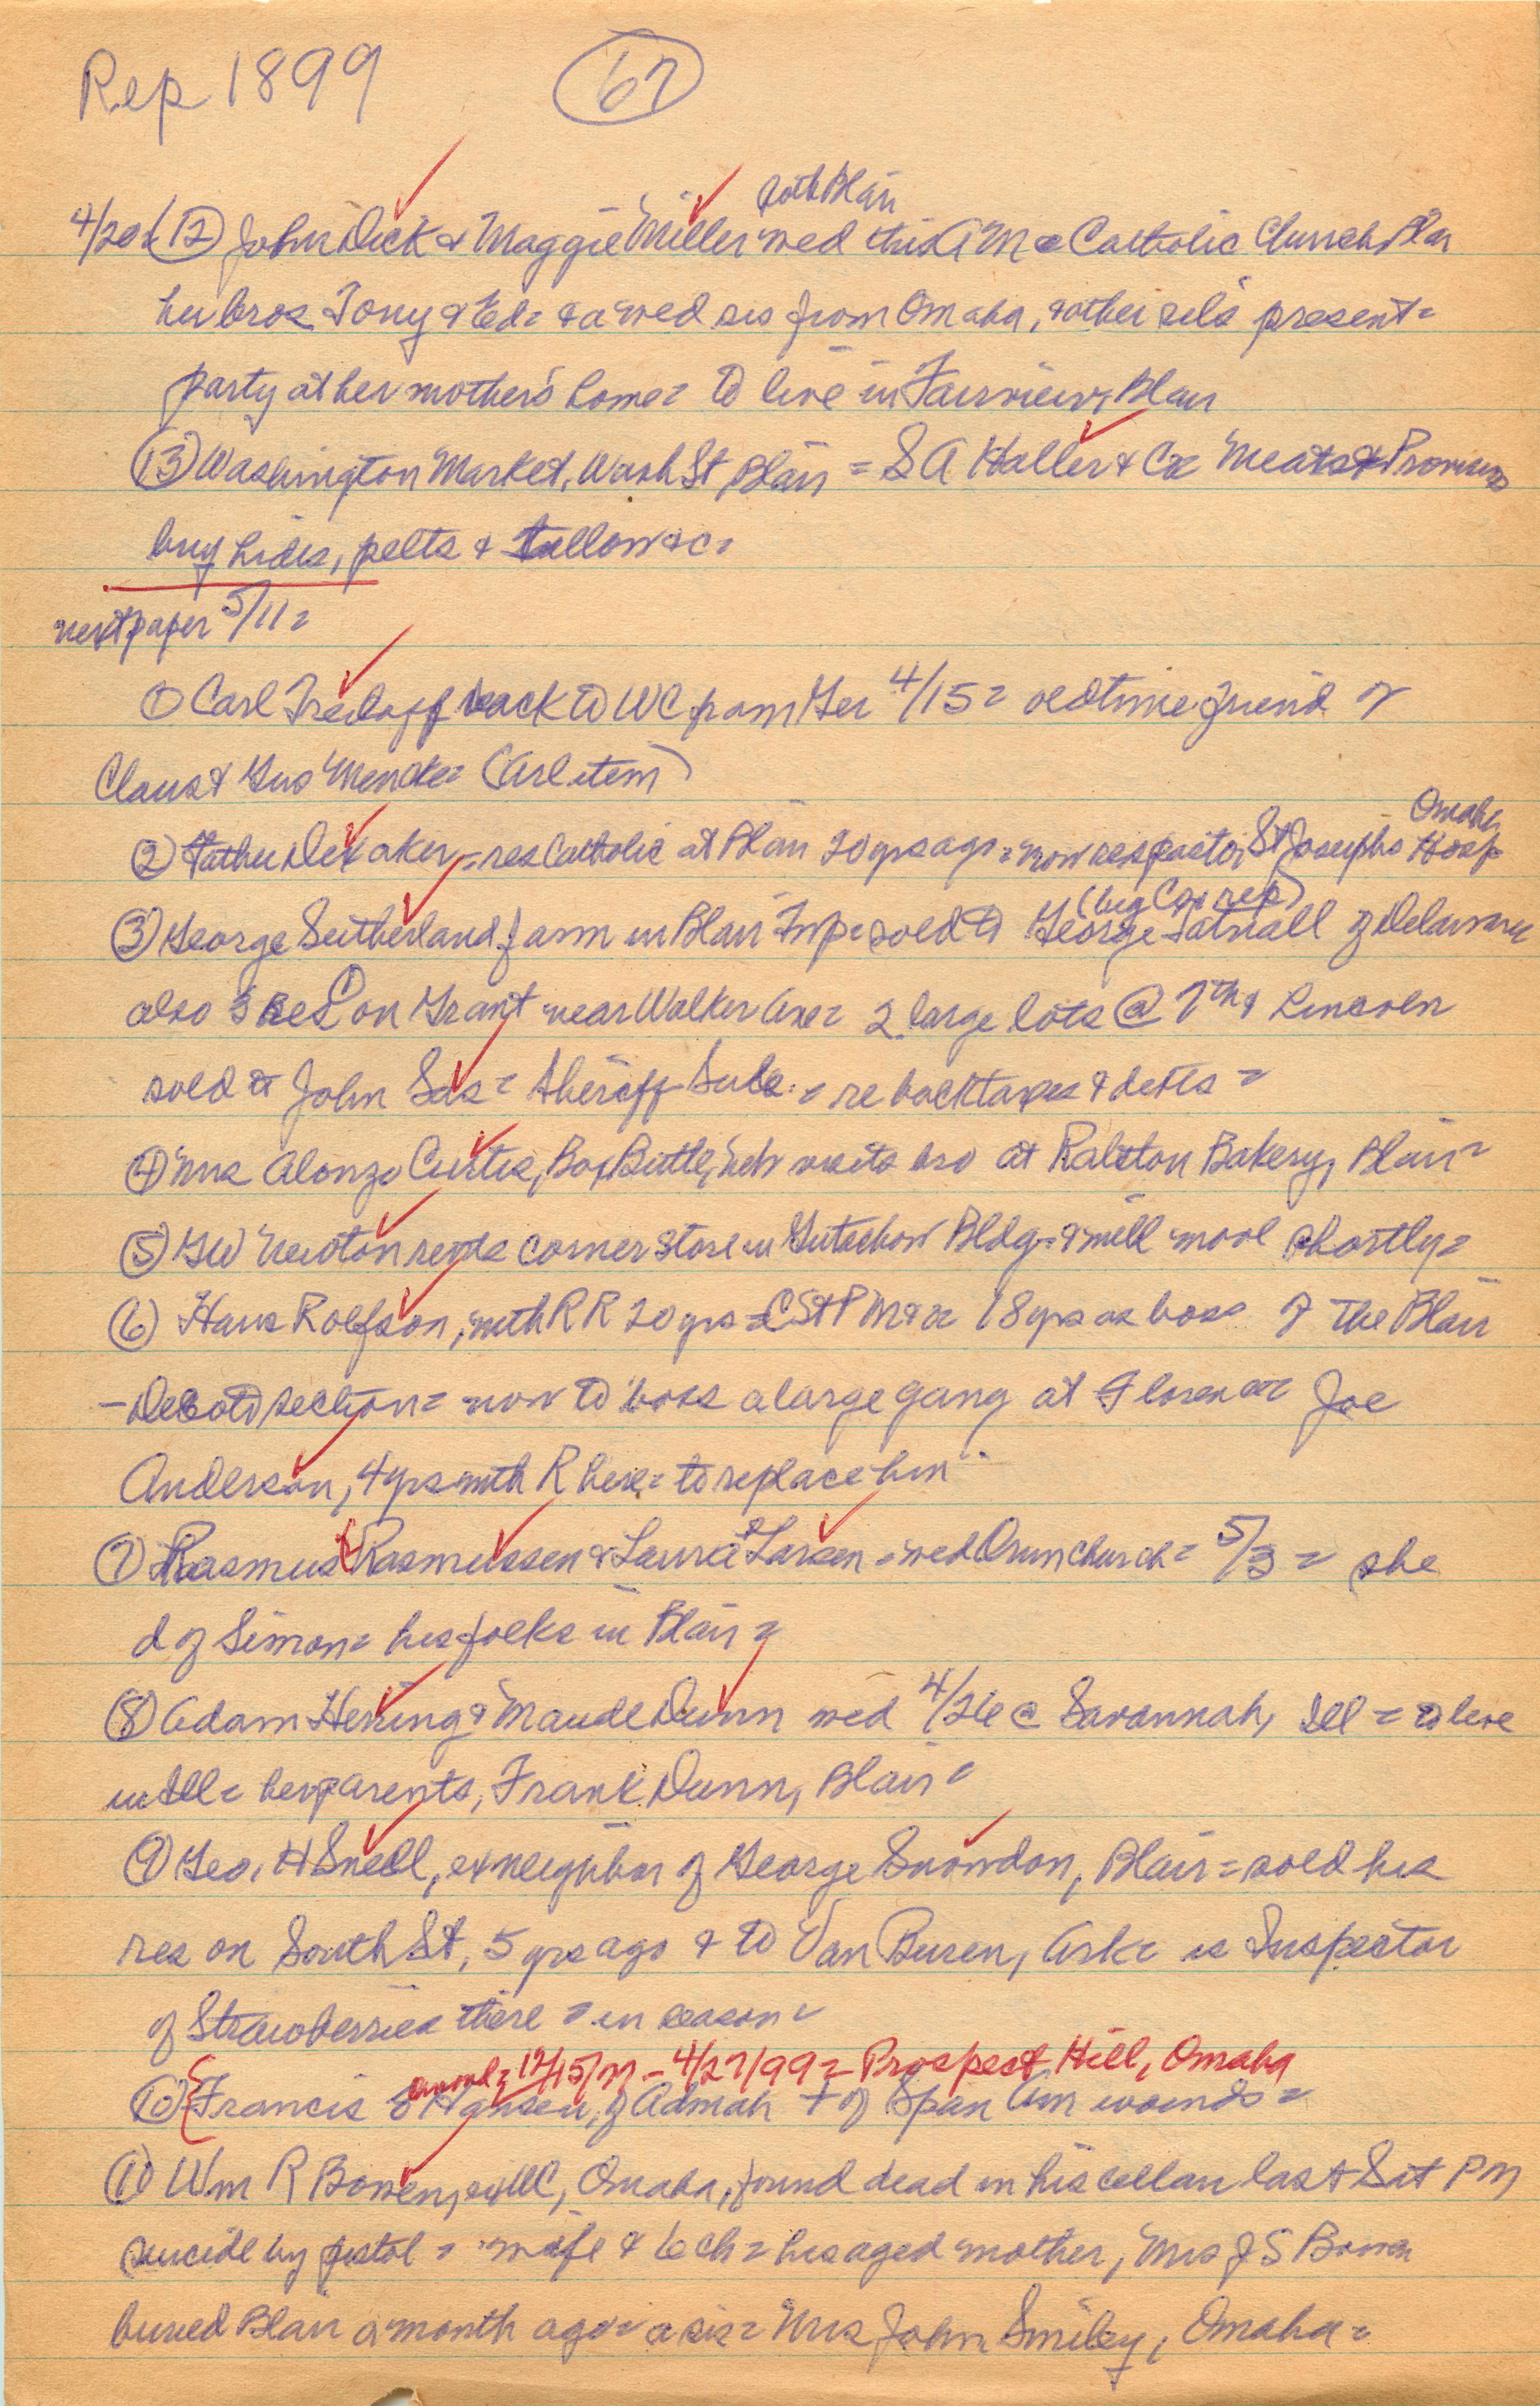 Rep 1899 67
both Blair
4/20 (12) John Dick & Maggie Miller wed this AM @ Catholic Church, Blair
her bros Tony & Ed = & a wed sis from Omaha, & other rels present =
party at her mother's home = to live in Fairview, Blair
(13) Washington Market, Wash St, Blair = S A Haller & Co Meats & Provisions
buy hides, pelts & tallow &c =
next paper 5/11 =
(1) Carl back to WC from Ger 4/15 = old time friend of
Claus & Gus Mencke = (Arl item)
Omaha
(2) Father = res Catholic at Blair 20 yrs ago = now res pastor, St Josephs Hosp
(by Co rep)
(3) George Sutherland farm in Blair Twp = sold to George Tatnall of Delaware
also 3 Res on Grant near Walker Ave = 2 large lots @ 7th & Lincoln
sold to John Sas = Sheriff Sale = re back taxes & debts =
(4) Mrs Alonzo Curtis, Box Butte, Neb visits bro at Ralston Bakery, Blair =
(5) GW Newton rents corner store in Gutschow Bldg = & will move shortly =
(6) Hans Rolfson, with RR 20 yrs = CStPM&O 18 yrs as boss of the Blair
- DeSoto section = now to boss a large gang at Florence = Joe
Anderson, 4 yrs with R here = to replace him =
(7) Rasmus Rasmussen & Laura Larsen = wed Orum church = 5/3 = she
d of Simon = his folks in Blair =
(8) Adam Herring & Maude Dunn wed 4/26 @ Savannah, Ill = to live
in Ill = her parents, Frank Dunn, Blair =
(9) Geo. H Snell, ex neighbor of George Snowdon, Blair = sold his
res on South St, 5 yrs ago & to Van Buren, Ark = is Inspector
of Strawberries there = in season =
12/15/ - 4/27/99 = Prospect Hill, Omaha
(10) Francis S Hansen, of Admah + of Span Am wounds =
(11) Wm R Bowen, ex WC, Omaha, found dead in his cellar last Sat PM
suicide by pistol = wife & 6 ch = his aged mother, Mrs J S Bowen
buried Blair a month ago = a sis = Mrs John Smiley, Omaha =